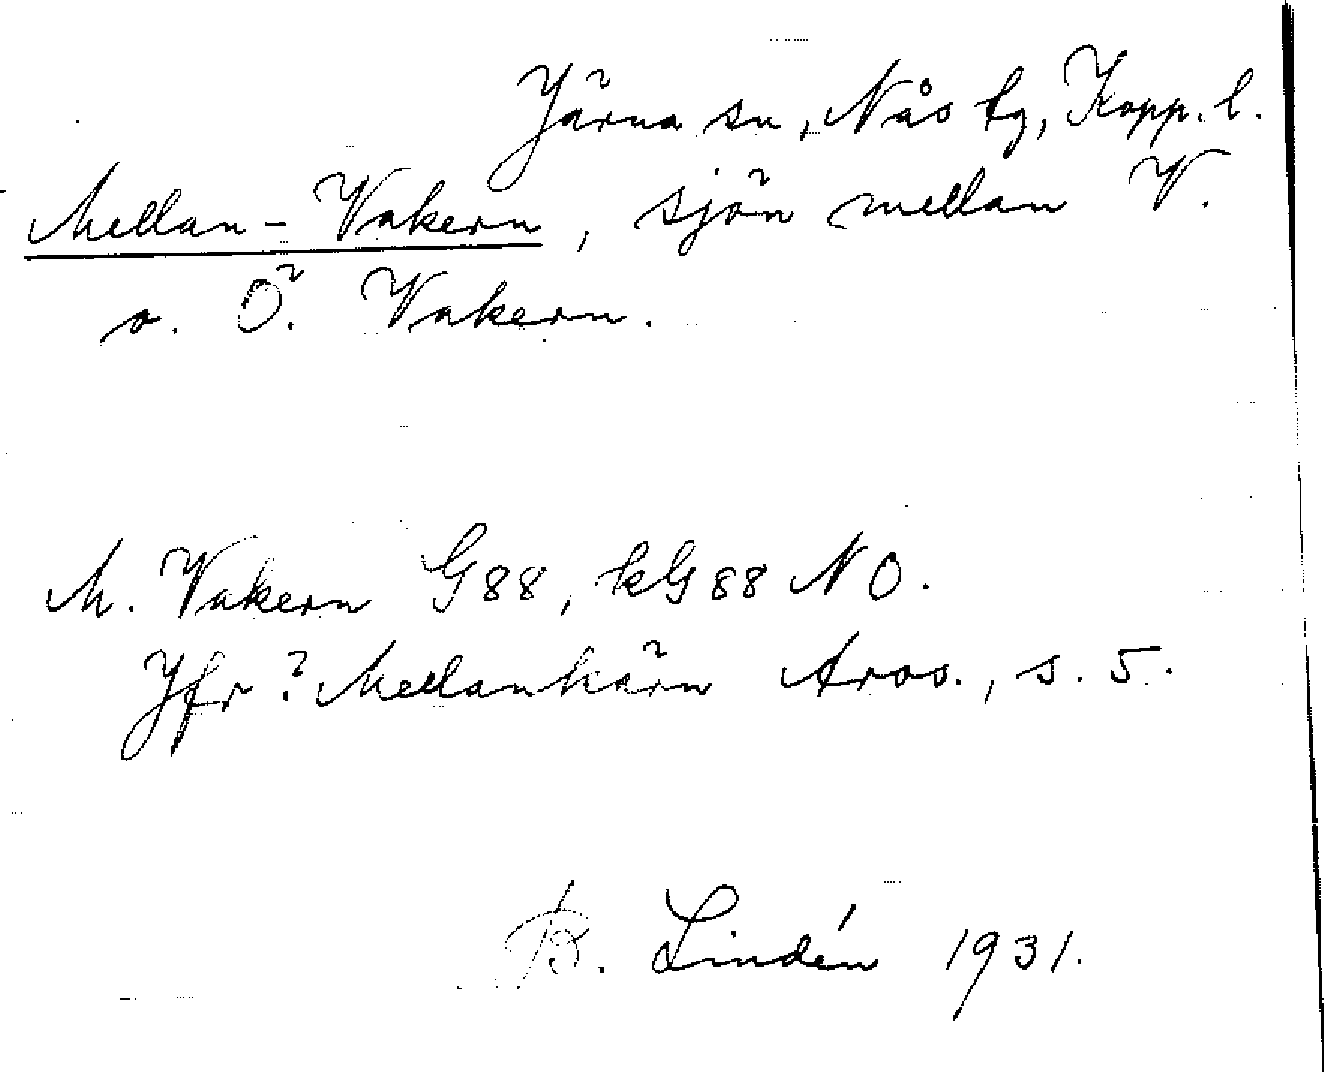 Järna sn, Nås tg, Kopp. l.
Mellan-Vakern, sjön mellan V.
o. Ö. Vakern.
M. Vakern G88, kG88 NO.
Jfr? Mellankärn Aros., s. 5.
B. Lindén 1931.